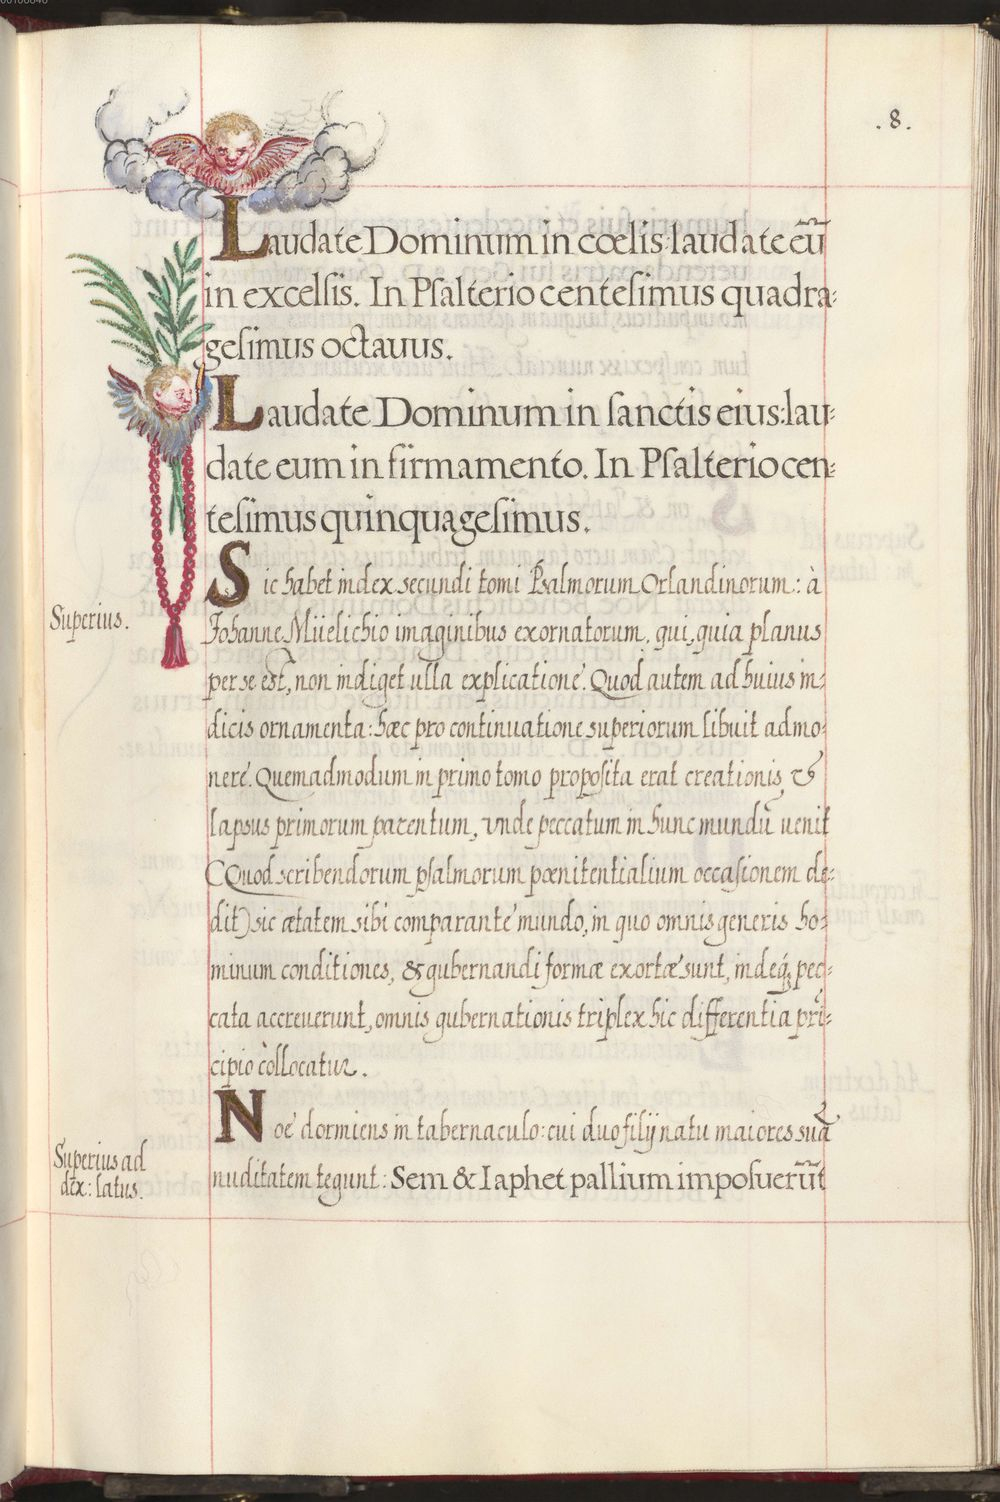 .8.
Laudate Dominum in cœlis: laudate eũ
in excelſis. In Pſalterio centeſimus quadra:
geſimus octauus.
Laudate Dominum in ſanctis eius: lau:
date eum in firmamento. In Pſalterio cen:
teſimus quinquageſimus.
Superius.
Sic habet index secundi tomi Psalmorum Orlandinorum: à
Johanne Müelichio imaginibus exornatorum, qui, quia planus
per se est, non indiget ulla explicatione. Quod autem ad huius in:
dicis ornamenta: hæc pro continuatione superiorum libuit admo:
nere. Quemadmodum in primo tomo proposita erat creationis, &
lapsus primorum parentum, vnde peccatum in hunc mundũ uenit
(Quod scribendorum psalmorum pœnitentialium occasionem de:
dit) sic ætatem sibi comparante mundo, in quo omnis generis ho:
minum conditiones, & gubernandi formæ exortæ sunt, indeq́; pec:
cata accreuerunt, omnis gubernationis triplex hic differentia prĩ:
cipio collocatur.
Superius ad
dex: latus.
Noe dormiens in tabernaculo: cui duo filij natu maiores suã
nuditatem tegunt: Sem & Iaphet pallium impoſuerũt